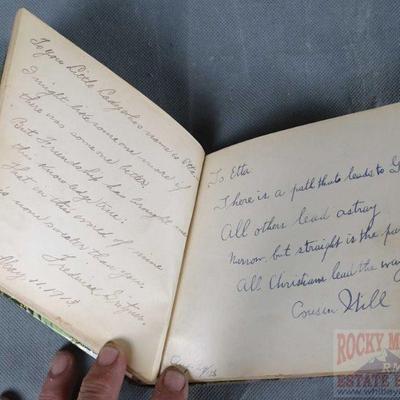 To you Little Lady who's name is Etta
I might like some one more if
there was some one better
But Friendship has taught me
this knowledge true
That in this world of mine
is none sweeter than you
Frederick
May 16, 1915
To Etta
There is a path that leads to G
All others lead astray
Narrow, but straight is the pa
All Christians lead the way
Cousin Will
ROCKY M
ESTATE
www.whitley